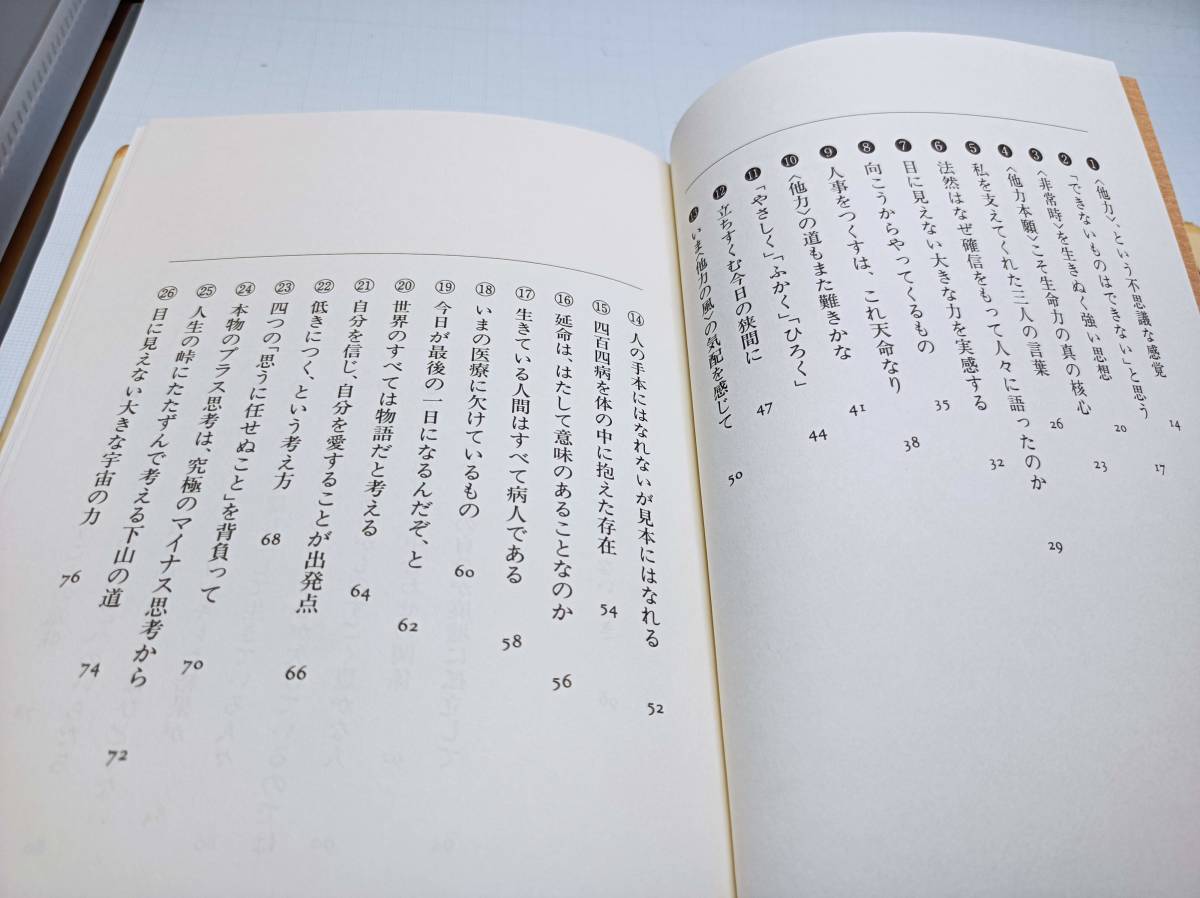 ❶〈他力〉、という不思議な感覚 14
❷「できないものはできない」と思う 17
❸〈非常時〉を生きぬく強い思想 20
❹〈他力本願〉こそ生命力の真の核心 23
❺私を支えてくれた三人の言葉 26
❻法然はなぜ確信をもって人々に語ったのか 29
❼目に見えない大きな力を実感する 32
❽向こうからやってくるもの 35
❾人事をつくすは、これ天命なり 38
❿〈他力〉の道もまた難きかな 41
⓫「やさしく」「ふかく」「ひろく」 44
⓬立ちすくむ今日の狭間に 47
⓭いま〈他力の風〉の気配を感じて 50
⑭人の手本にはなれないが見本にはなれる 52
⑮四百四病を体の中に抱えた存在 54
⑯延命は、はたして意味のあることなのか 56
⑰生きている人間はすべて病人である 58
⑱いまの医療に欠けているもの 60
⑲今日が最後の一日になるんだぞ、と 62
⑳世界のすべては物語だと考える 64
㉑自分を信じ、自分を愛することが出発点 66
㉒低きにつく、という考え方 68
㉓四つの「思うに任せぬこと」を背負って 70
㉔本物のプラス思考は、究極のマイナス思考から 72
㉕人生の峠にたたずんで考える下山の道 74
㉖目に見えない大きな宇宙の力 76